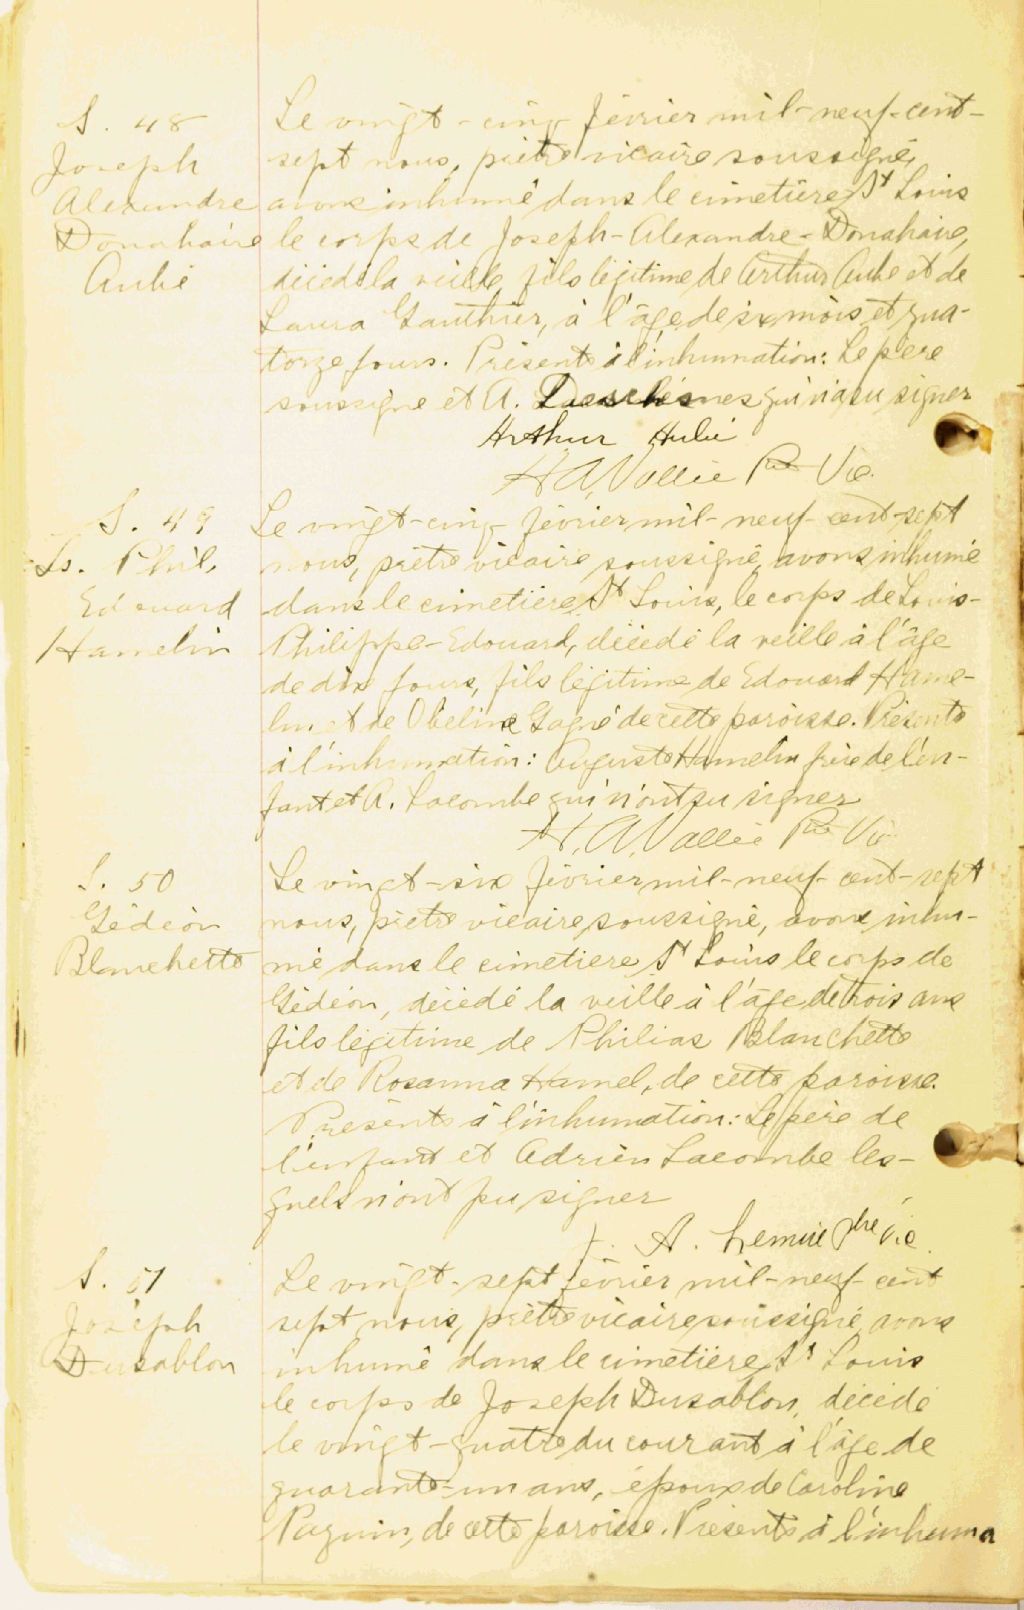 S. 48
Joseph
Alexandre
Donahaire
Aubé
Le vingt-cinq février mil-neuf-cent-
sept nous, prêtre vicaire soussigné,
avons inhumé dans le cimetière St Louis
le corps de Joseph-Alexandre-Donahaire,
décédé la veille, fils légitime de Arthur Aubé et de
Laura Gauthier, à l'âge de six mois et qua-
torze jours. Présents à l'inhumation: Le père
soussigné et A. qui n'a su signer
Arthur Aubé
H A. Vallée Ptre Vic.
S. 49
Ls. Phil.
Edouard
Hamelin
Le vingt-cinq février mil-neuf-cent-sept
nous, prêtre vicaire soussigné, avons inhumé
dans le cimetière St Louis, le corps de Louis-
Philippe-Edouard, décédé la veille à l'âge
de dix jours, fils légitime de Edouard Hame-
lin et de Obéline Gagné de cette paroisse. Présents
à l'inhumation: Auguste Hamelin frère de l'en-
fant et A. Lacombe qui n'ont su signer
H. A. Vallée Ptre Vic
S. 50
Gédéon
Blanchette
Le vingt-six février mil-neuf-cent-sept
nous, prêtre vicaire soussigné, avons inhu-
mé dans le cimetière St Louis le corps de
Gédéon, décédé la veille à l'âge de trois ans
fils légitime de Philias Blanchette
et de Rosanna Hamel, de cette paroisse.
Présents à l'inhumation: Le père de
l'enfant et Adrien Lacombe les-
quels n'ont pu signer
J. A. Lemire Ptre Vic.
S. 51
Joseph
Dusablon
Le vingt-sept février mil-neuf-cent
sept nous, prêtre vicaire soussigné avons
inhumé dans le cimetière St Louis
le corps de Joseph Dusablon, décédé
le vingt-quatre du courant à l'âge de
quarante-un ans, époux de Caroline
Paquin, de cette paroisse. Présents à l'inhuma